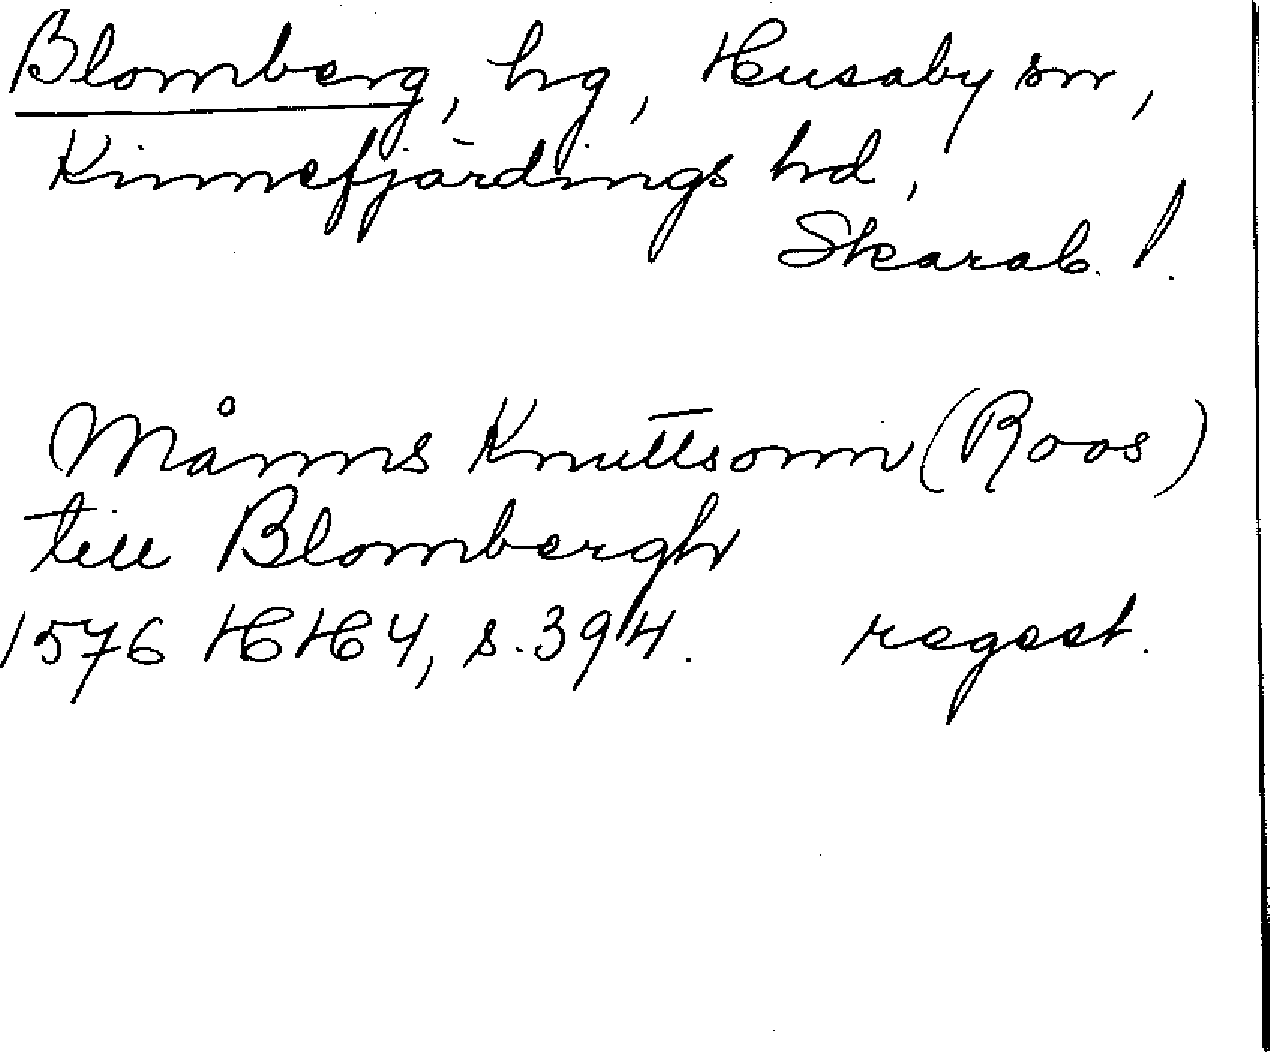 Blomberg, hg, Husaby sn,
Kinnefjärdings hd,
Skarab. l.
Månns Knuttsonn (Roos)
till Blombergh
1576 HH 4, s. 394. regest.